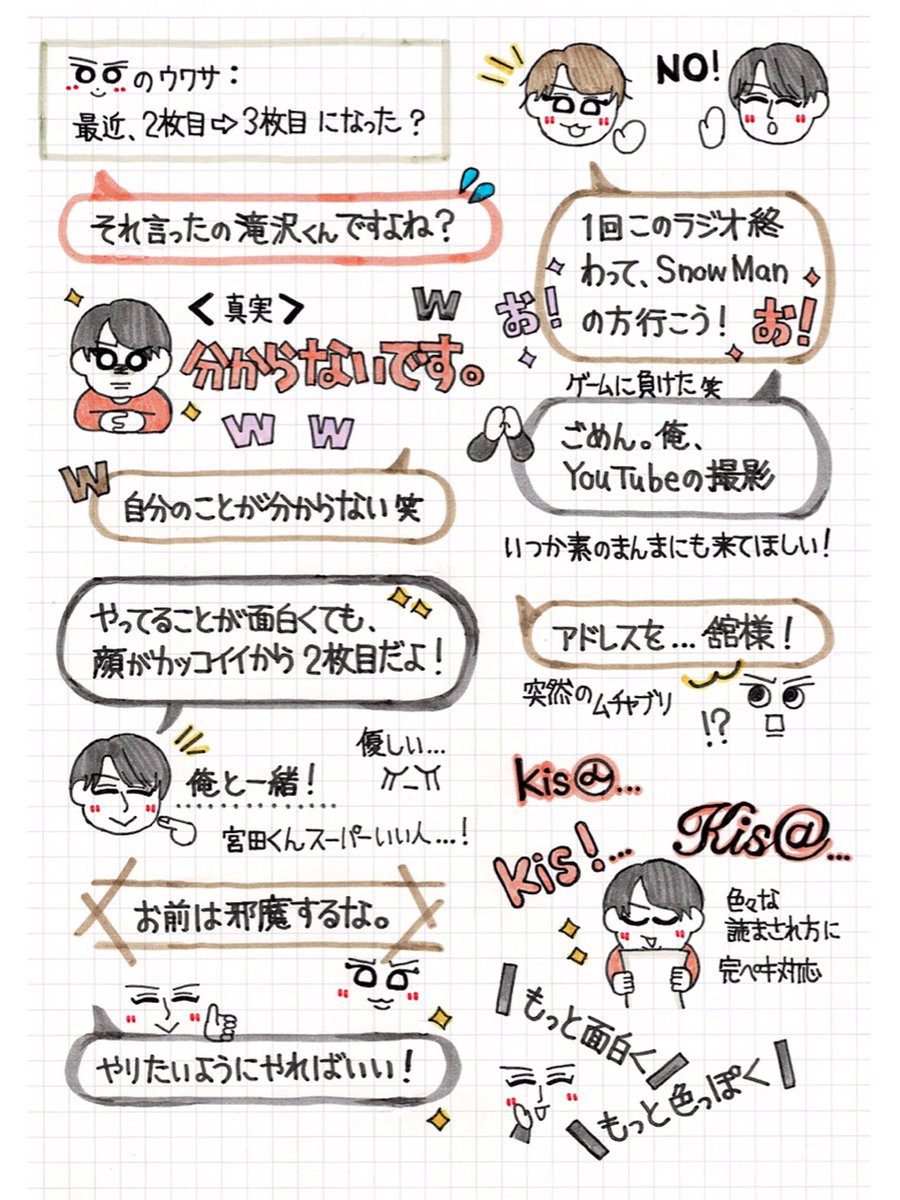 のウワサ：
最近、2枚目⇨3枚目になった？
それ言ったの滝沢くんですよね？
＜真実＞
分からないです。
w
w w
w
自分のことが分からない笑
やってることが面白くても、
顔がカッコイイから2枚目だよ！
俺と一緒！
優しい…
宮田くんスーパーいい人…！
お前は邪魔するな。
やりたいようにやればいい！
NO!
1回このラジオ終
わって、SnowMan
の方行こう！
お！
お！
ゲームに負けた笑
ごめん。俺、
YouTubeの撮影
いつか素のまんまにも来てほしい！
アドレスを…舘様！
突然の
ムチャブリ
!?
kis@…
Kis@…
Kis!…
色々な
読まされ方に
完ペキ対応
もっと面白く
もっと色っぽく